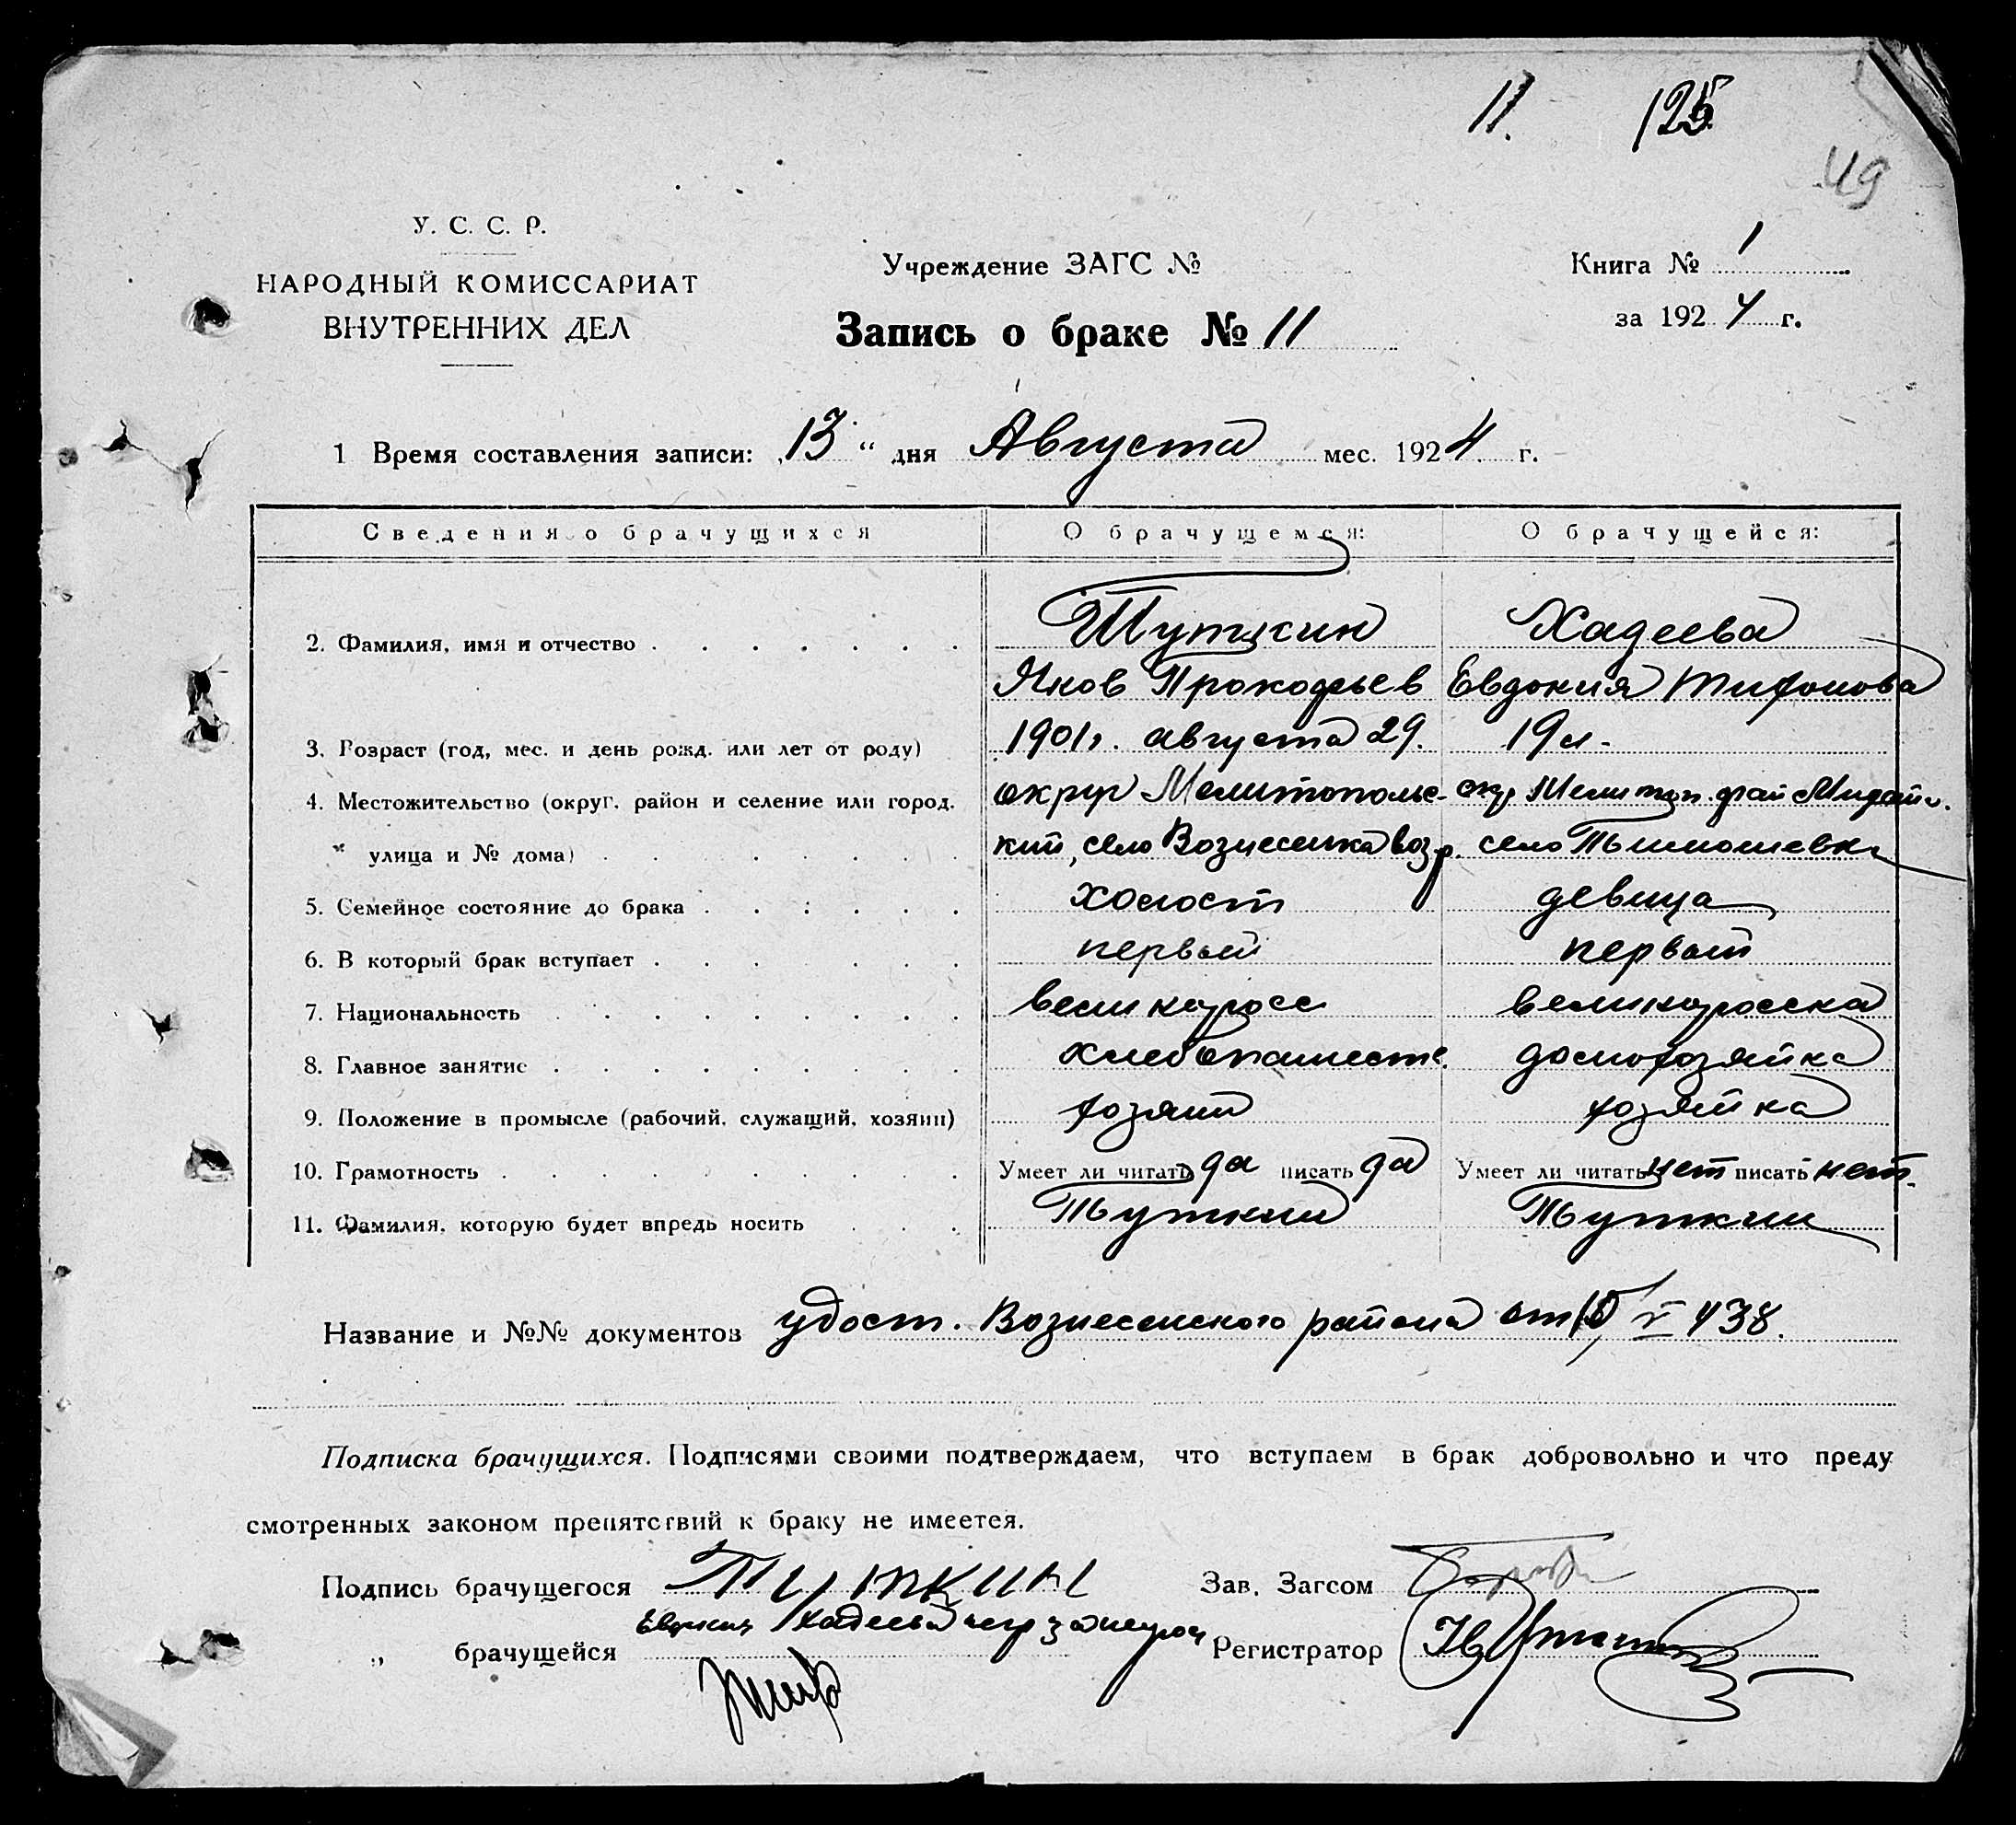 11. 125
49
У. С. С. Р.
НАРОДНЫЙ КОМИССАРИАТ
ВНУТРЕННИХ ДЕЛ
Учреждение ЗАГС №
Запись о браке № 11
Книга № 1
за 1924 г.
1 Время составления записи: „13“ дня Августа мес. 1924 г.
Сведения о брачущихся О брачущемся: О брачущейся:
2. Фамилия, имя и отчество Тупткин Хадеева
Яков Прокофьев Евдокия Тифонова
3. Возраст (год, мес. и день рожд. или лет от роду) 1901г. августа 29. 19 л.
4. Местожительство (округ, район и селение или город, округ Мелитопольс- окр Мелитоп. рай
улица и № дома) кий, село Вознесенка село Тимошевка
5. Семейное состояние до брака холост девица
6. В который брак вступает первый первый
7. Национальность великоросс великоросска
8. Главное занятие хлебопашест. домохозяйка
9. Положение в промысле (рабочий, служащий, хозяин) хозяин хозяйка
10. Грамотность Умеет ли читать да писать да Умеет ли читать нет писать нет.
11. Фамилия, которую будет впредь носить Тупткин Тупткин
Название и №№ документов удост. Вознесенского района от V 438.
Подписка брачущихся. Подписями своими подтверждаем, что вступаем в брак добровольно и что преду
смотренных законом препятствий к браку не имеется.
Подпись брачущегося Тупткин Зав. Загсом
„ брачущейся Хадеева Регистратор